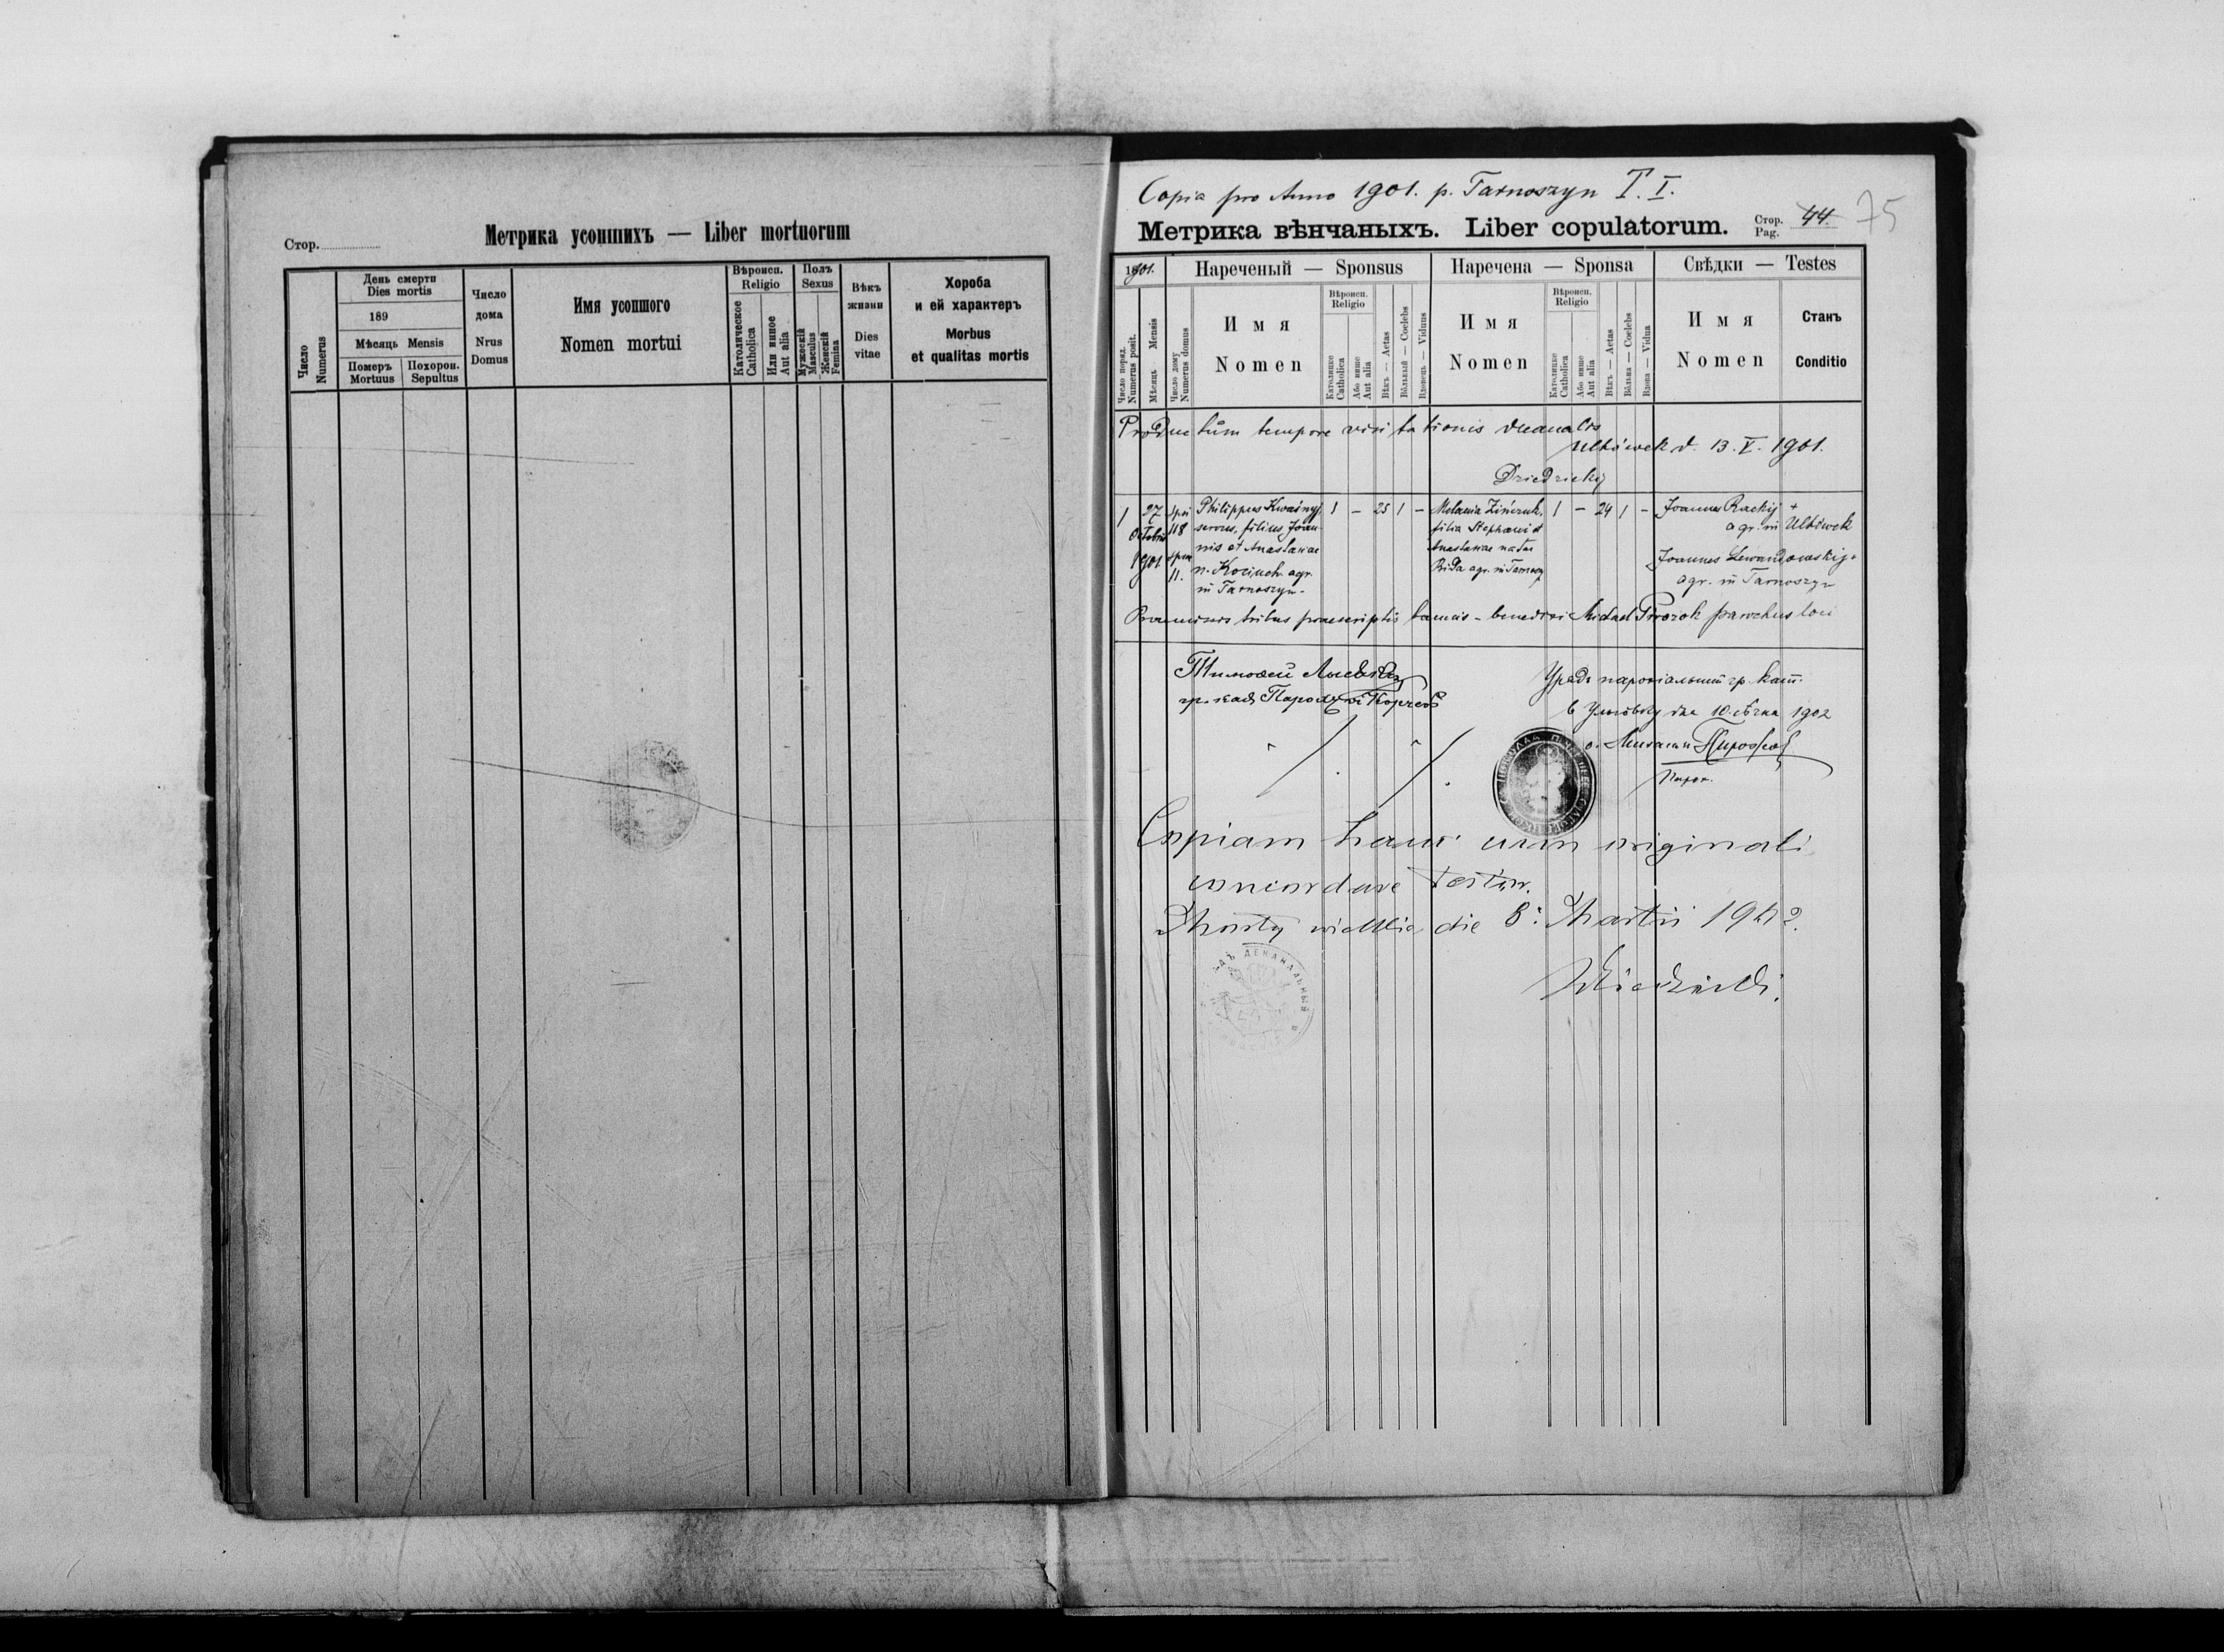 Стор.
Метрика усопшихъ — Liber mortuorum
Число
Numerus
День смерти
Dies mortis
189
Мѣсяць Mensis
Померъ
Mortuus
Похорон.
Sepultus
Число
дома
Nrus
Domus
Имя усопшого
Nomen mortui
Вѣроисп.
Religio
Католическое
Catholica
Или инное
Aut alia
Полъ
Sexus
Мужескій
Masculus
Женскій
Femina
Вѣкъ
жизни
Dies
vitae
Хороба
и ей характеръ
Morbus
et qualitas mortis
Copia pro Anno 1901. p. Tarnoszyn T. I.
Метрика вѣнчаныхъ. Liber copulatorum.
Стор.
Pag.
44.
75
1901.
Нареченый — Sponsus
Наречена — Sponsa
Свѣдки — Testes
Число поряд.
Numerus posit.
Мѣсяць Mensis
Число дому
Numerus domus
Имя
Nomen
Вѣроисп.
Religio
Католицке
Catholica
Або инше
Aut alia
Вѣкъ — Aetas
Вôльный — Coelebs
Вдовець — Viduus
Имя
Nomen
Вѣроисп.
Religio
Католицке
Catholica
Або инше
Aut alia
Вѣкъ — Aetas
Вôльна — Coelebs
Вдова — Vidua
Имя
Nomen
Станъ
Conditio
Productum tempore visitationis decanalis
Ulhówek d. 13. V. 1901.
Dziedzickij
1
27
Octobris
1901
118
11.
Philippus Kwaśnyj
servus, filius Joan-
nis et Anastasiae
n. Kociuch agr.
in Tarnoszyn.
1 — 25 1 —
Melania Zińczuk,
filia Stephani et
Anastasiae natae
agr. in
1 — 24 1 —
Joannes Rackij +
agr. in Ulhówek
Joannes Lewandowskij +
agr. in Tarnoszyn
tribus praescriptis factis - benedixi Michael Pirozok parochus loci
Тимофей
гр. кат.
Урядъ парохіальный гр. кат.
в дня 10. 1902
о. Михаилъ Пирожок
Парох.
Copiam hanc cum originali
concordare testor.
Mosty wielkie die 8. Martii 1902.
ДЕКАНАЛЬНЫЙ